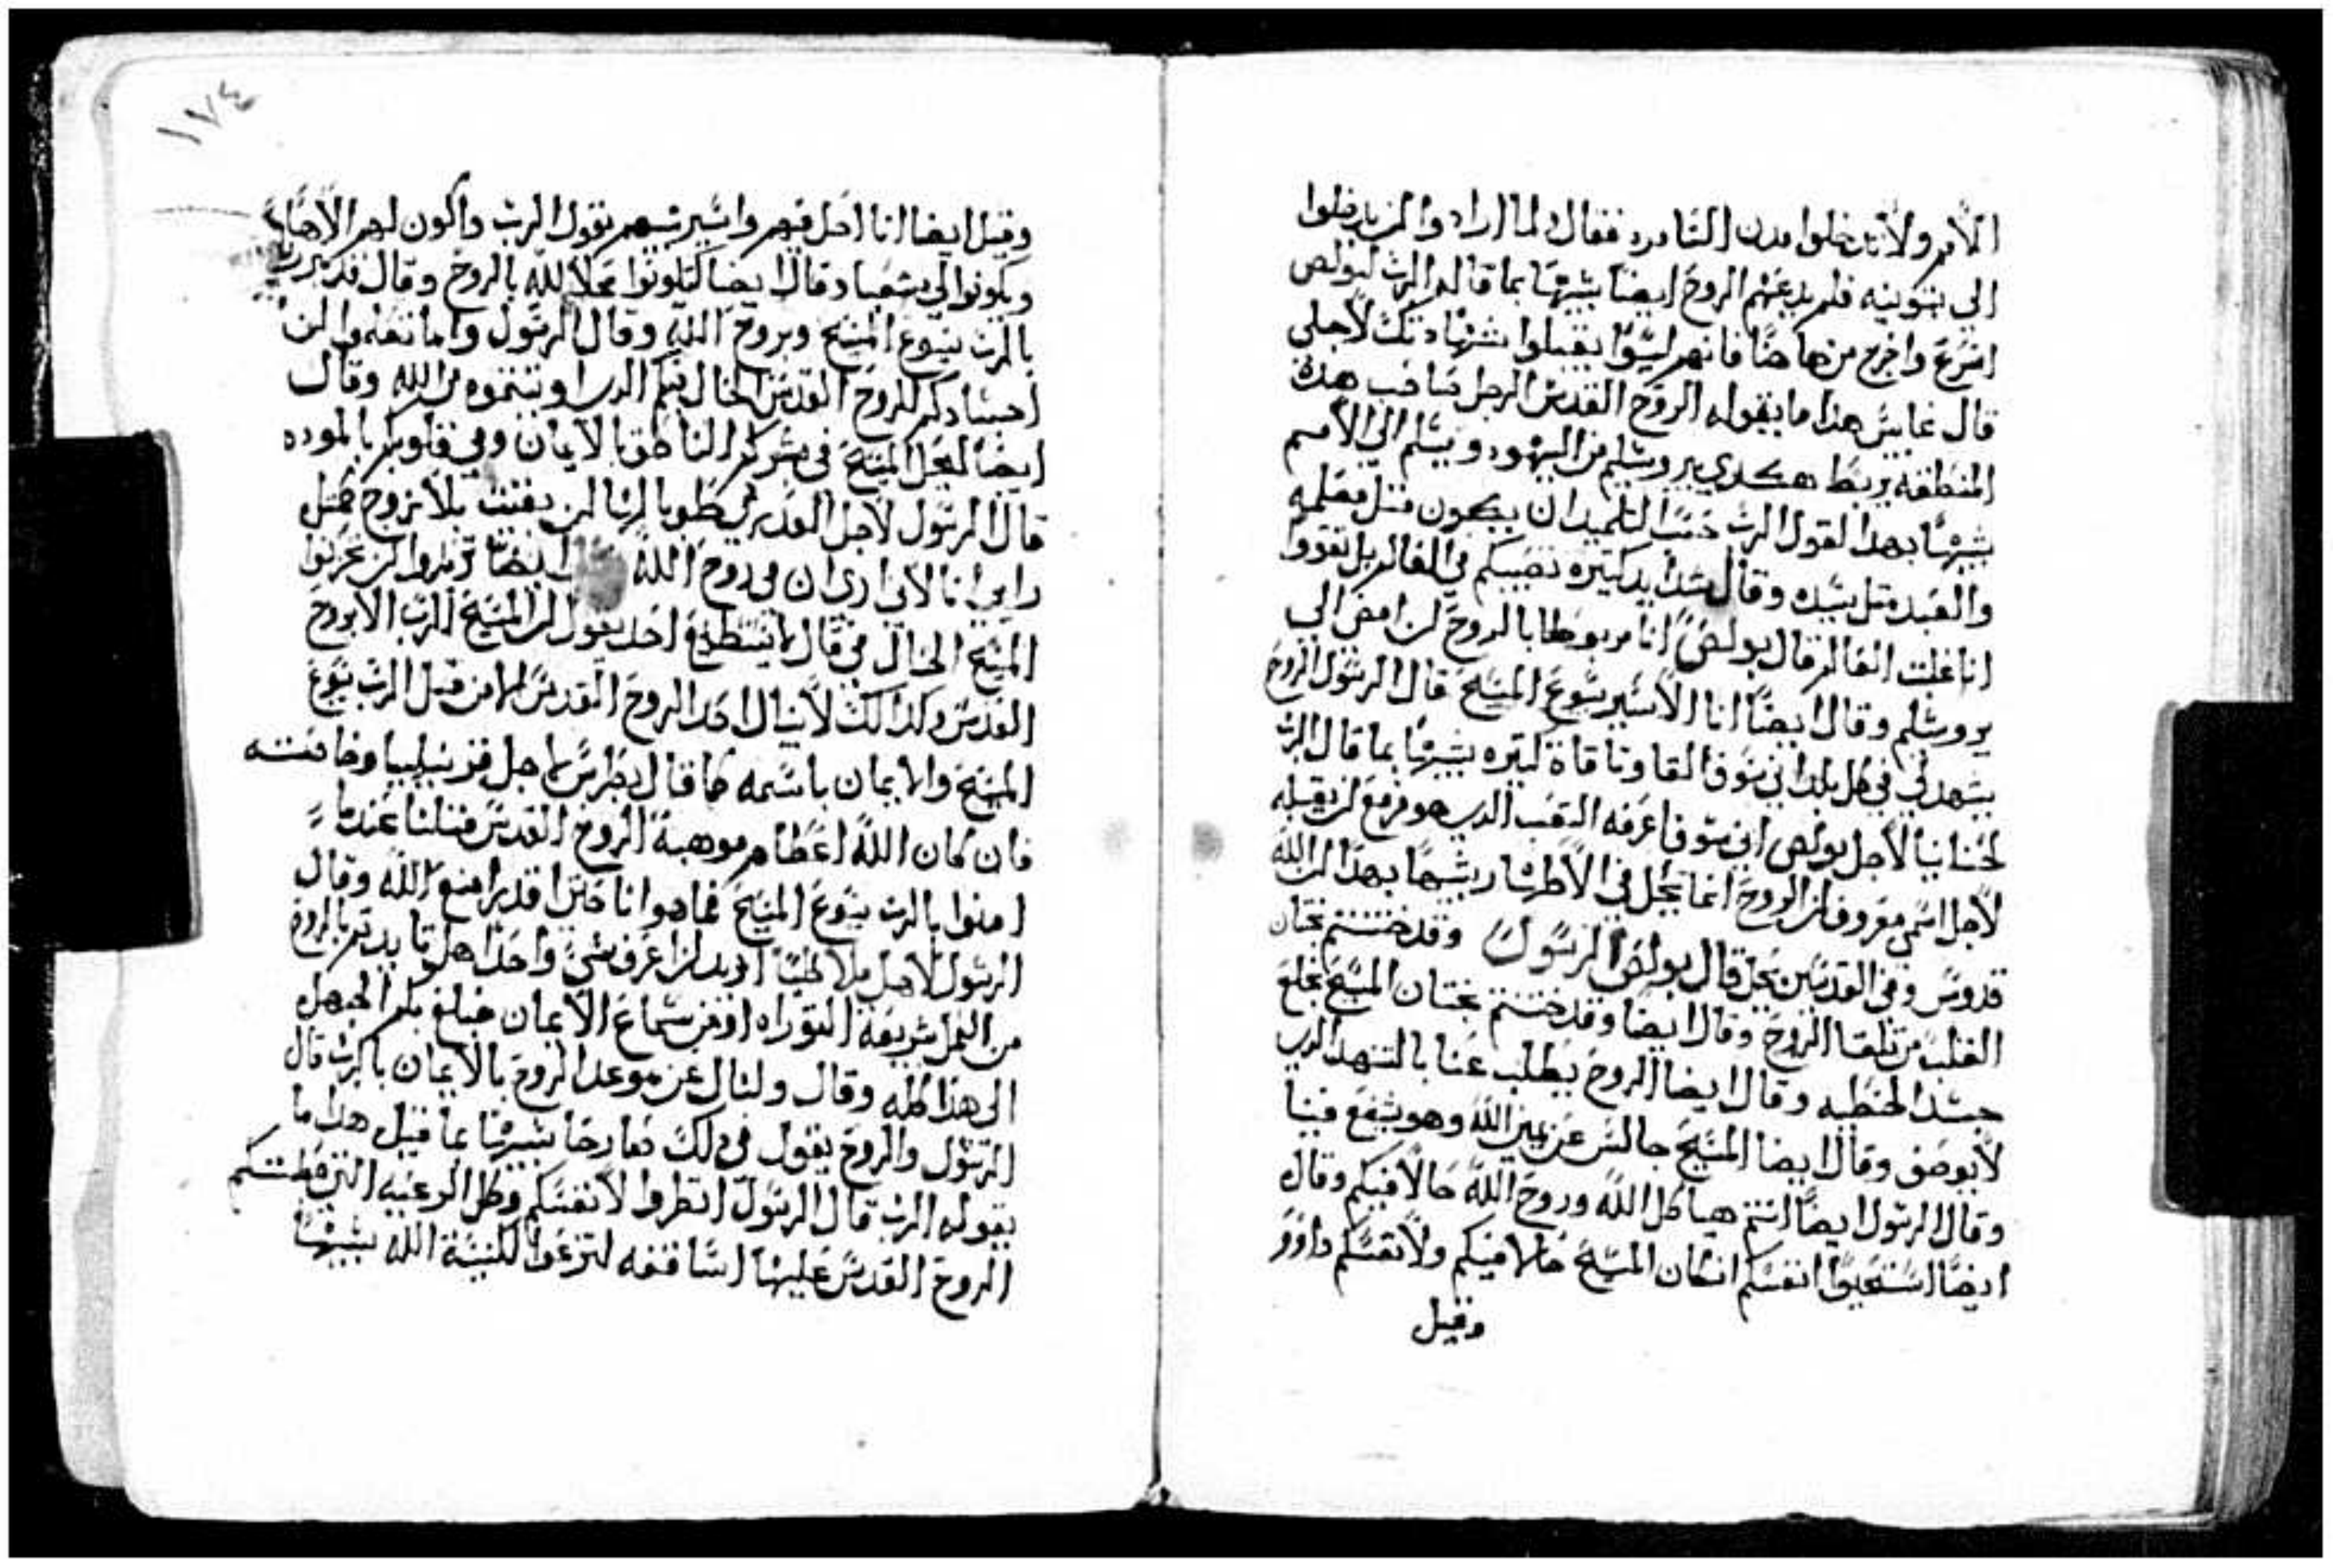 الامم ولا تدخلوا مدن السامره فقال لما ارادوا ان يدخلوا
الي بتوينيه فلم يدعهم الروح ايضا شبيها بما قاله الرب لبولص
اسرع واخرج من هاهنا فانهم ليسوا يقبلوا شهادتك لاجلي
قال غابس هذا ما يقوله الروح القدس الرجل صاحب هذه
المنطقه يربط هكدي بيروشليم من اليهود ويسلم الي الامم
شبيها بهدا القول الرب حسب التلميد ان يكون متل معلمه
والعبد متل سيده وقال شدايد كتيره تصيبكم في العالم بل تقووا
انا غلبت العالم قال بولص انا مربوطا بالروح لن امض الي
يروشليم وقال ايضا انا الاسير يسوع المسيح قال الرسول الروح
يشهد لي في كل بلد اني سوف القا وثاقات كتيره شبيها بما قال الرب
لحنانيا لاجل بولص اني سوف اعرفه التعب الدي هو مزمع ان يقبله
لاجل اسمي معروف ان الروح انما يحل في الاطهار شبيها بهدا ان الله
قدوس وفي القديسين يحل قال بولص الرسول وقد ختنتم بختان
القلب من تلقا الروح وقال ايضا وقد ختنتم بختان المسيح بخلع
جسد الخطيه وقال ايضا الروح يطلب عنا بالتنهد الدي
لا يوصف وقال ايضا المسيح جالس عن يمين الله وهو يشفع فينا
وقال الرسول ايضا انتم هياكل الله وروح الله حالا فيكم وقال
ايضا انفسكم ان كان المسيح حالا فيكم ولانفسكم
وقيل
١٧٤
وقيل ايضا انا احل فيهم واسير بينهم يقول الرب واكون لهم الاها
ويكونوا لي شعبا وقال ايضا لتكونوا محلا لله بالروح وقال قد تبررتم
بالرب يسوع المسيح وبروح الله وقال الرسول واما تعلموا ان
اجسادكم للروح القدس الحال فيكم الدي من الله وقال
ايضا ليحل المسيح في بالايمان وفي قلوبكم بالموده
قال الرسول لاجل طوباها ان بقيت بلا تزوج متل
رايي انا لاني اري ان في روح الله ايضا
المسيح الحال في قال لا يستطيع احد يقول ان المسيح الرب الا بروح
القدس وكدالك لا ينال احد الروح القدس الا من قبل الرب يسوع
المسيح والايمان باسمه كما قال بطرس لاجل
فان كان الله اعطاهم موهبة الروح القدس متلنا عندما
امنوا بالرب يسوع المسيح فما هو انا حتي اقدر امنع الله وقال
الرسول لاهل اريد ان اعرف شي واحد هل بالروح
من شريعة التوراه او من سماع الايمان فبلغ بكم الجهل
الي هذا كله وقال ولننال عن موعد الروح بالايمان بالرب قال
الرسول والروح يقول في ذلك شبيها بما قيل هدا ما
يقوله الرب قال الرسول انظروا لانفسكم وكل الرعيه التي
الروح القدس عليها اساقفه لترعوا كنيسة الله شبيها